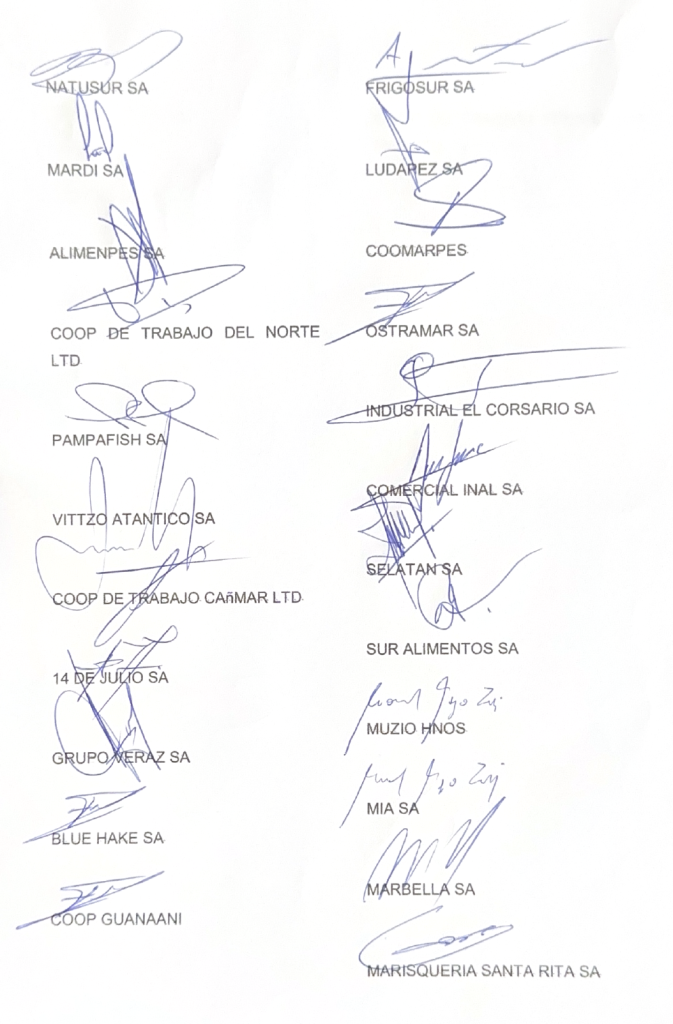 NATUSUR SA
MARDI SA
ALIMENPES SA
COOP DE TRABAJO DEL NORTE
LTD
PAMPAFISH SA
VITTZO ATANTICO SA
COOP DE TRABAJO CAñMAR LTD
14 DE JULIO SA
GRUPO VERAZ SA
BLUE HAKE SA
COOP GUANAANI
FRIGOSUR SA
LUDAPEZ SA
COOMARPES
OSTRAMAR SA
INDUSTRIAL EL CORSARIO SA
COMERCIAL INAL SA
SELATAN SA
SUR ALIMENTOS SA
MUZIO HNOS
MIA SA
MARBELLA SA
MARISQUERIA SANTA RITA SA